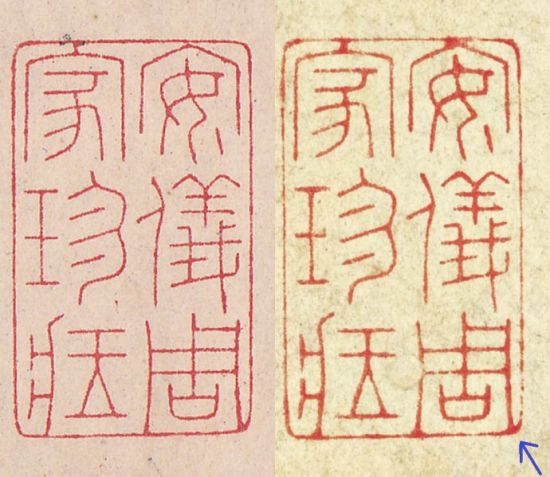 安儀周
家珍藏
安儀周
家珍藏